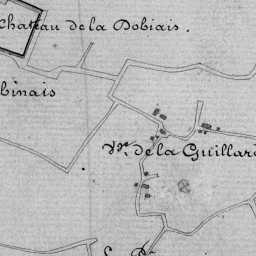 Chateau de la Dobiais.
binais
V.ge de la Guillar